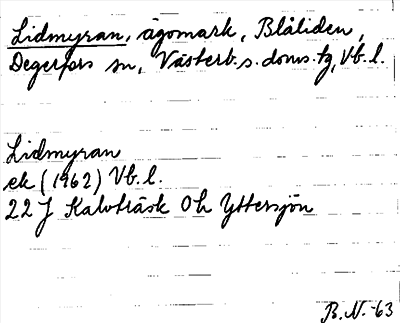 Lidmyran, ägomark, Blåliden,
Degerfors sn, Västerb.s.doms.tg, Vb.l.
Lidmyran
ek (1962) Vb.l.
22 J Kalvträsk Oh Yttersjön
B.N.-63